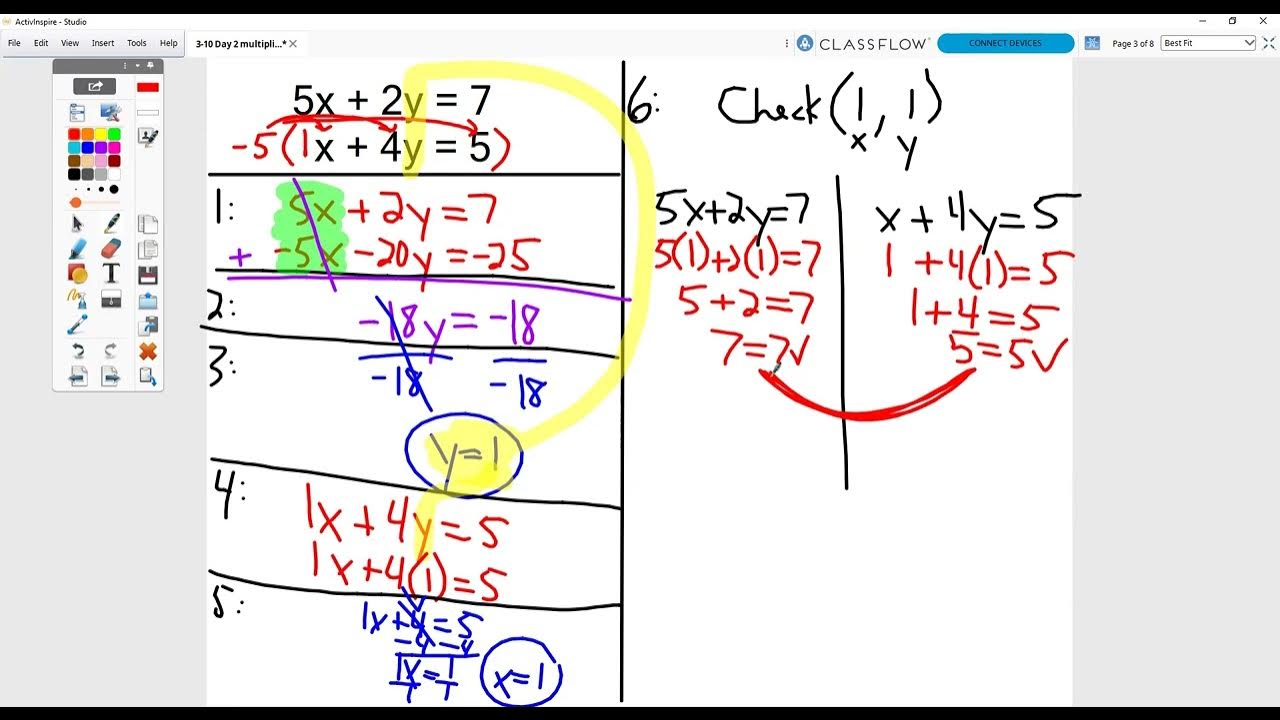 ActivInspire - Studio
File Edit View Insert Tools Help
3-10 Day 2 multipli...*
CLASSFLOW
CONNECT DEVICES
Page 3 of 8
Best Fit
5x + 2y = 7
-5(1x + 4y = 5)
1:
5x + 2y = 7
+ -5x - 20y = -25
2:
-18y = -18
3:
-18 -18
y = 1
4:
1x + 4y = 5
1x + 4(1) = 5
5:
1x + 4 = 5
-4 -4
1x = 1
1 1
x = 1
6: Check (1, 1)
x y
5x + 2y = 7
5(1) + 2(1) = 7
5 + 2 = 7
7 = 7 ✓
x + 4y = 5
1 + 4(1) = 5
1 + 4 = 5
5 = 5 ✓